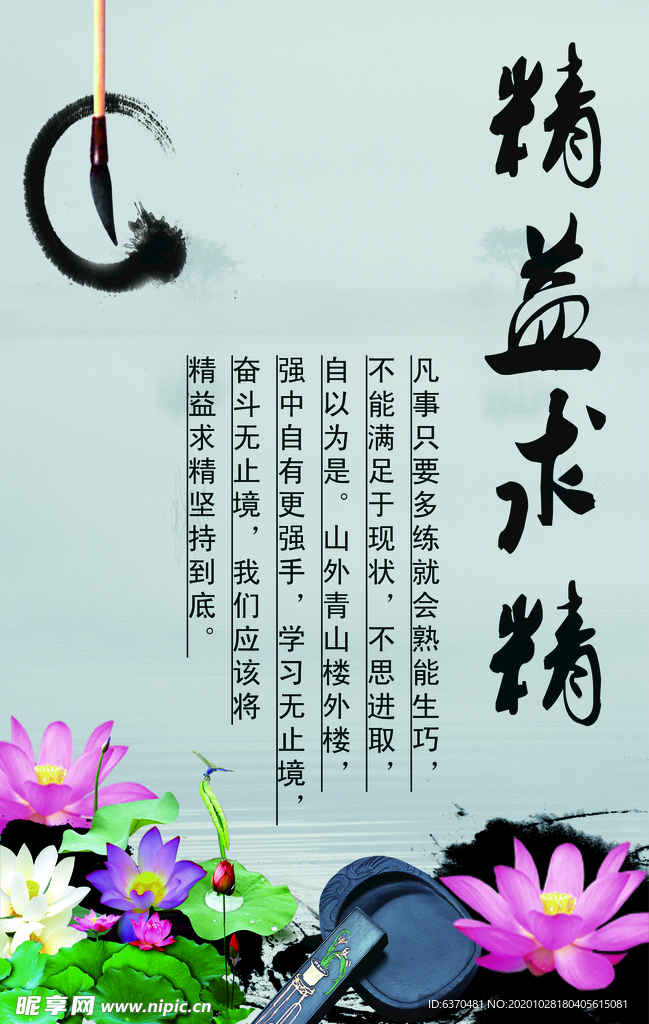 精益求精
凡事只要多练就会熟能生巧，
不能满足于现状，不思进取，
自以为是。山外青山楼外楼，
强中自有更强手，学习无止境，
奋斗无止境，我们应该将
精益求精坚持到底。
昵享网 www.nipic.cn
ID:6370481 NO:20201028180405615081